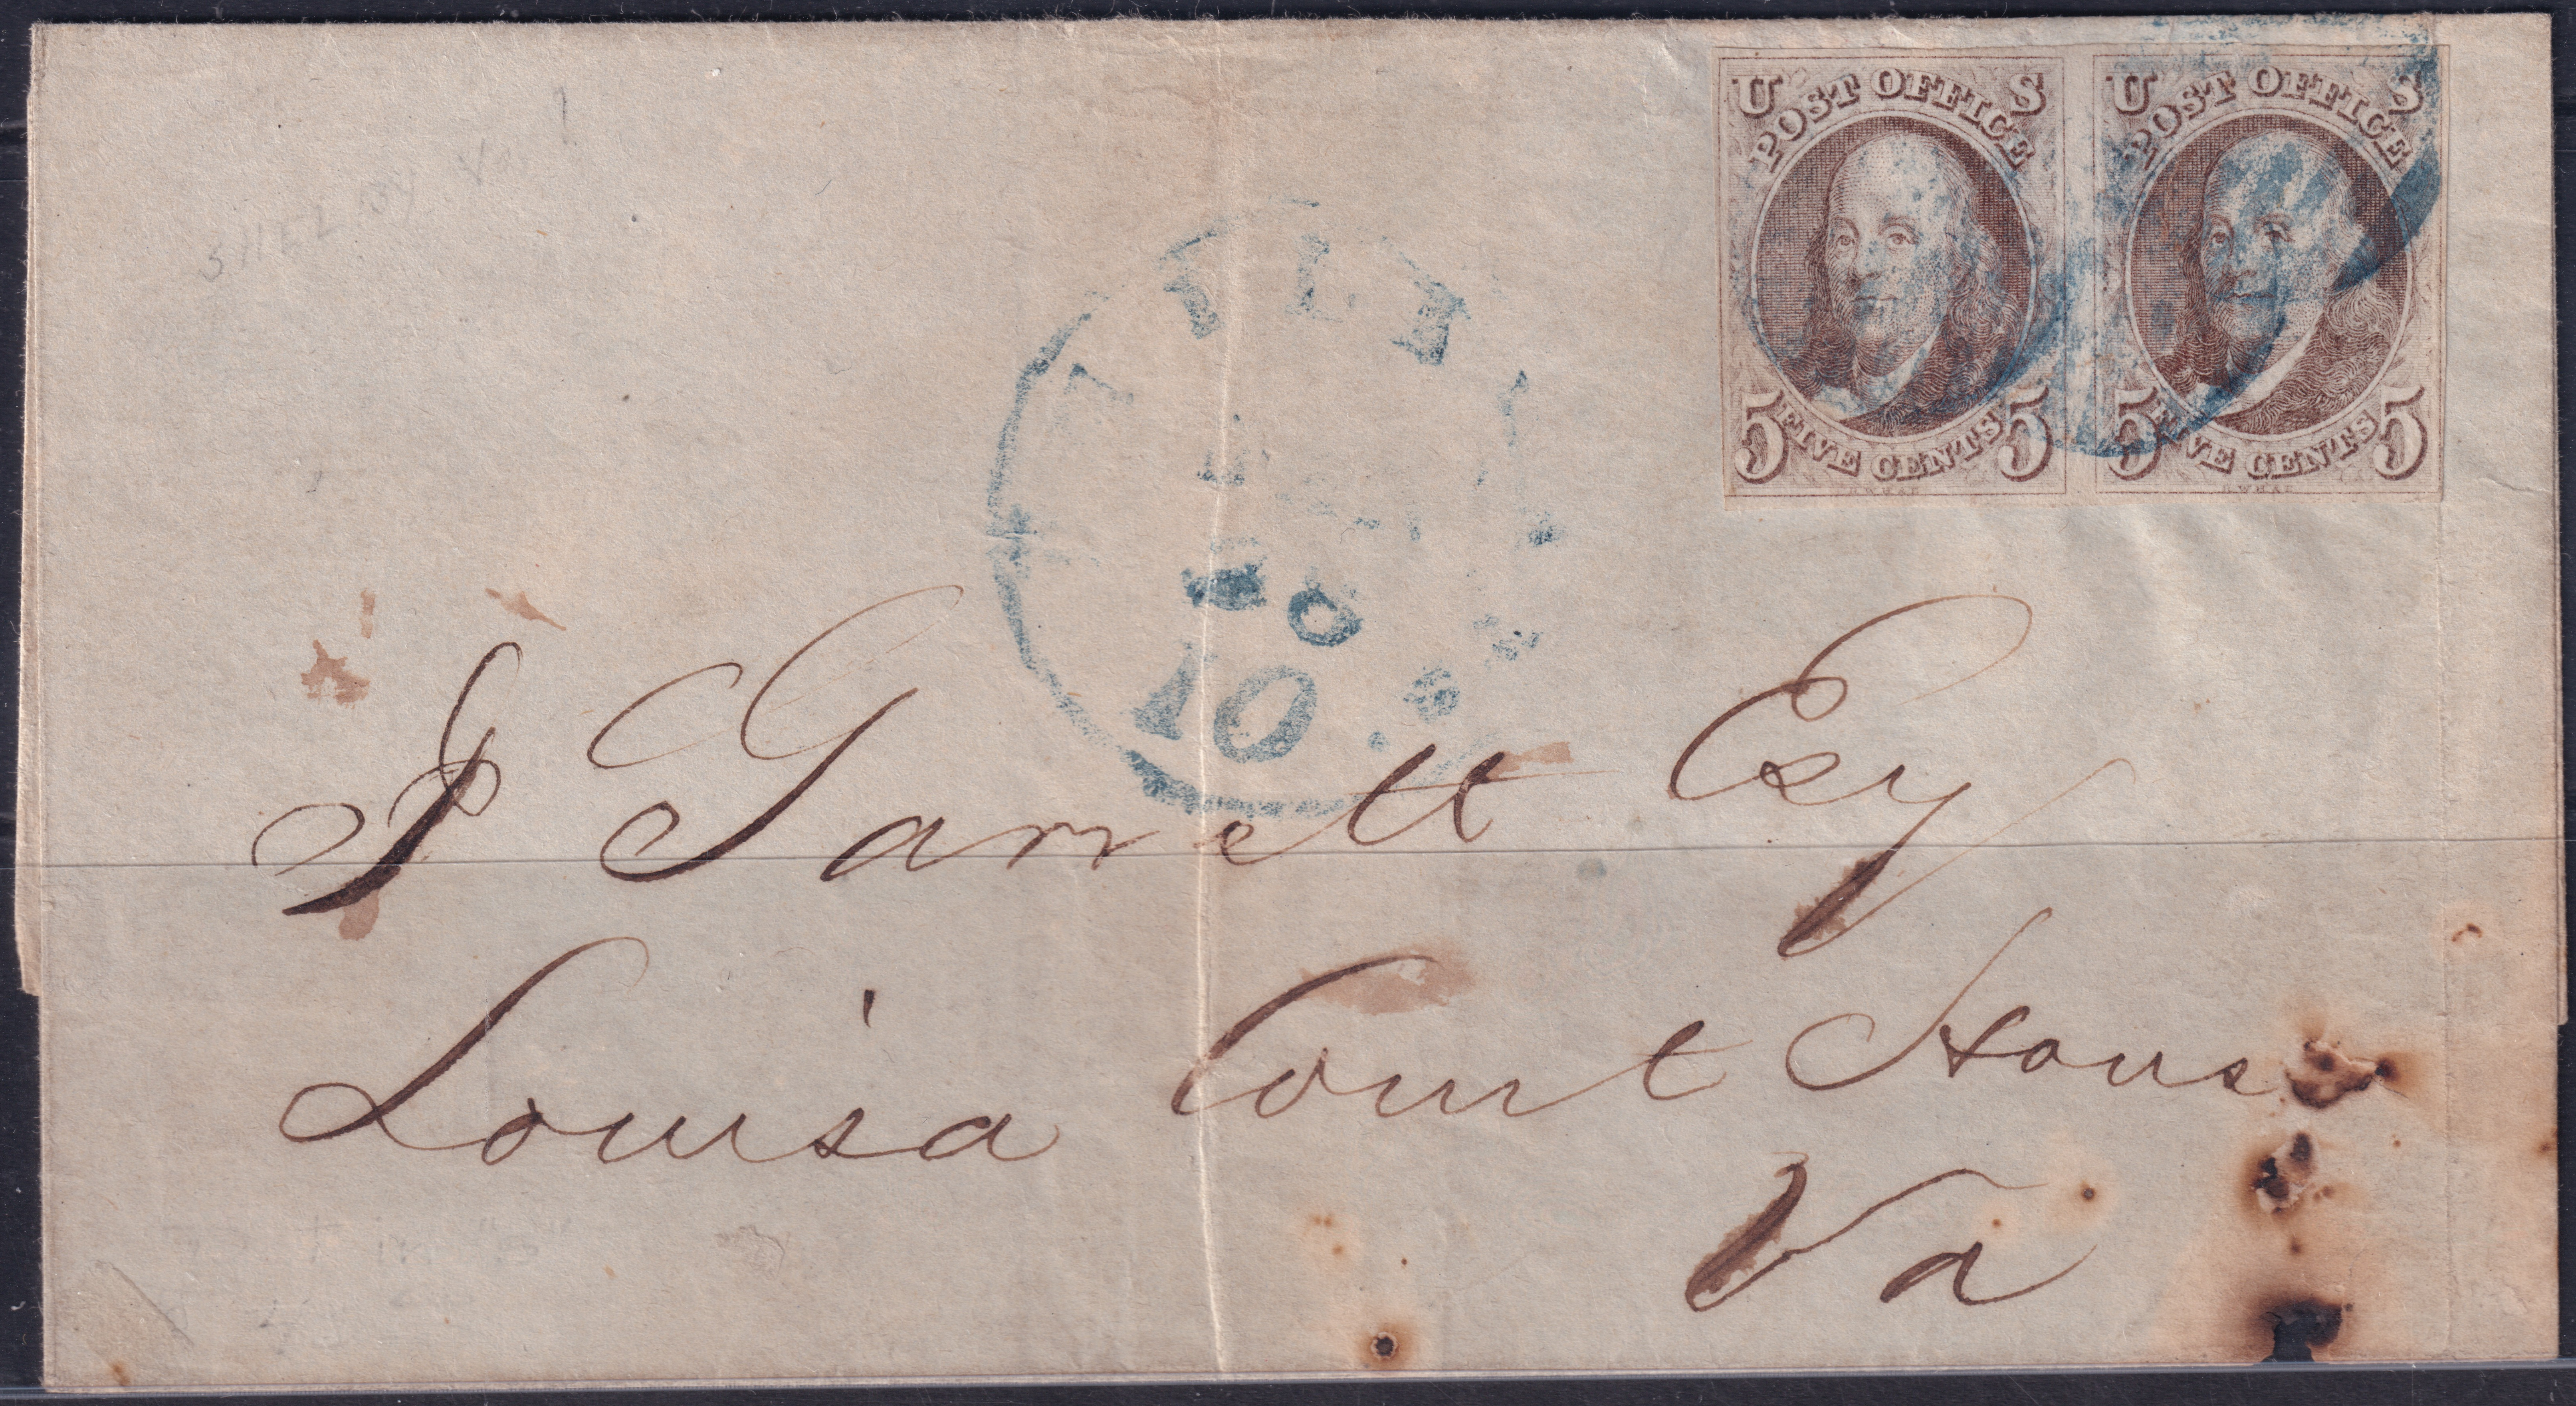 SHELBY Va
U S
POST OFFICE
5 FIVE CENTS 5
U S
POST OFFICE
5 FIVE CENTS 5
10
J Garrett Esq
Louisa Court House
Va